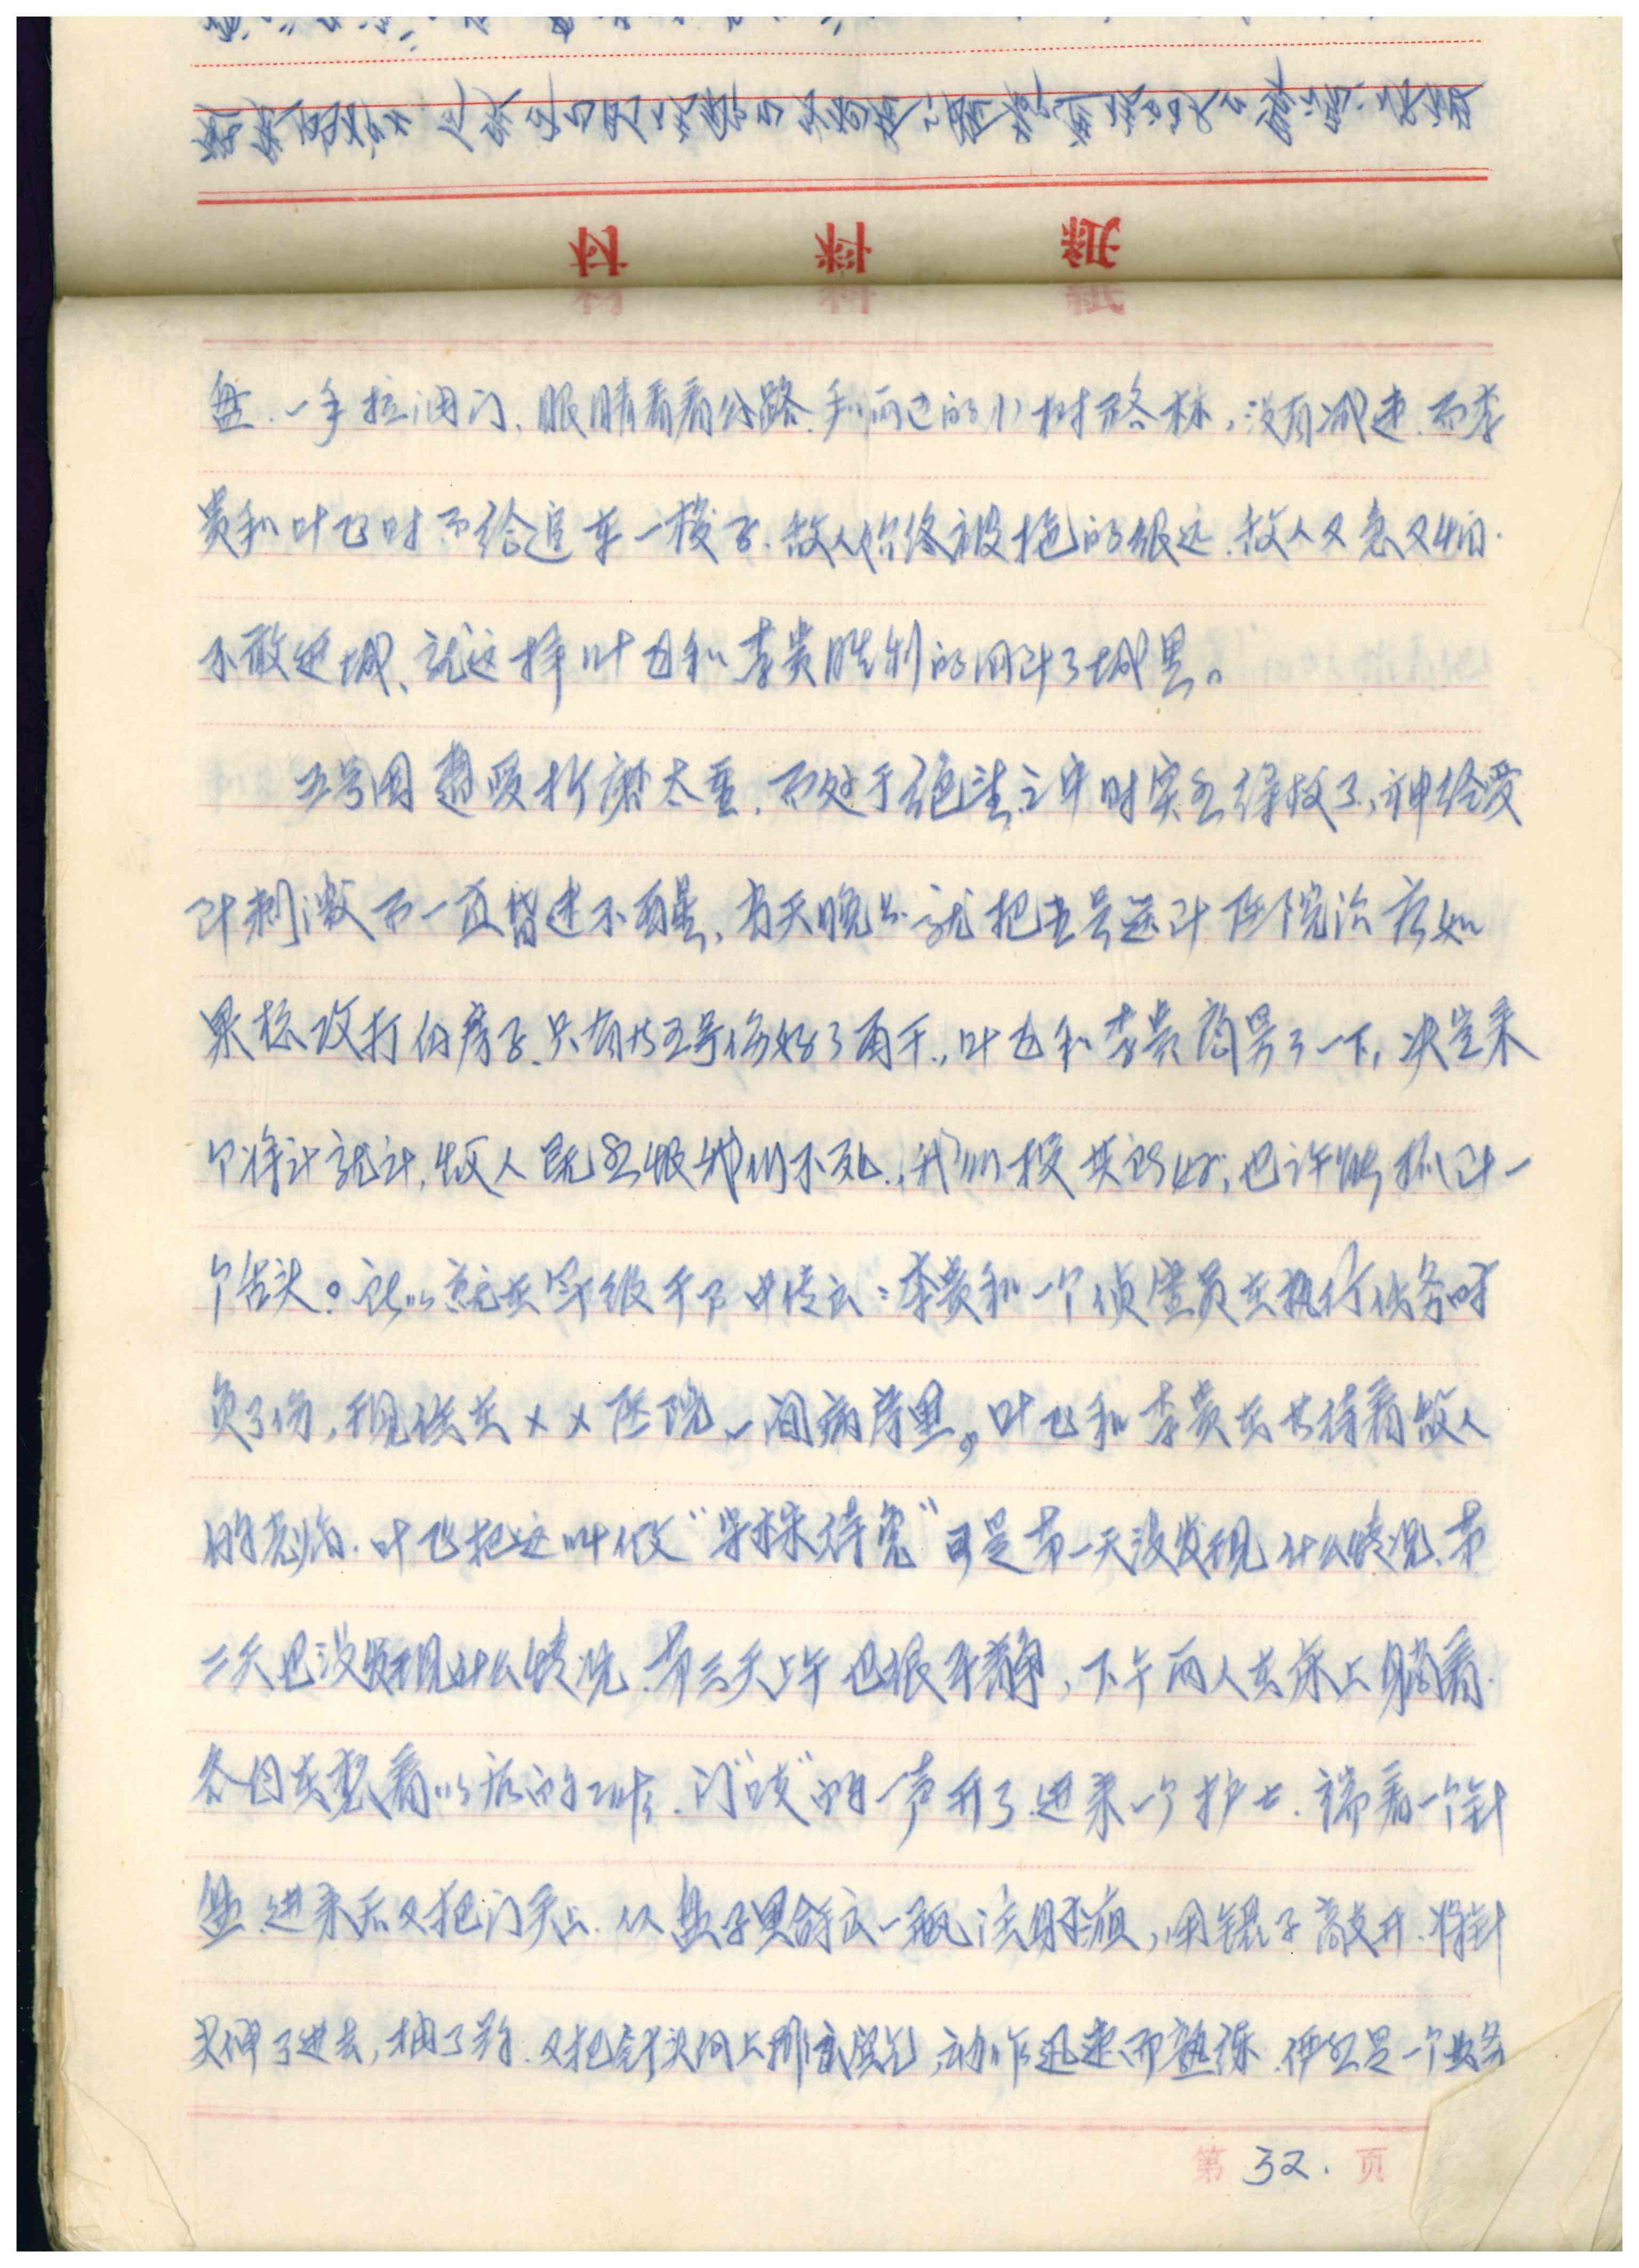 材料纸
盘.一手拉油门.眼睛看着公路.和两边的小树森林,没有减速.而李
贵和叶飞时而给追车一梭子.敌人始终被拖的很远.敌人又急又怕.
不敢进城、就这样叶飞和李贵胜利的回到了城里。
五号因遭受折磨太重.而处于绝望之中时突然得救了,神经受
到刺激而一直昏迷不醒,当天晚上就把五号送到医院治疗如
果想攻打伯房子.只有等五号伤好了再干.,叶飞和李贵商量了一下,决定来
个将计就计,敌人既然恨我们不死.,我们投其所好,也许能抓到一
个舌头。所以就在军级干部中传出:李贵和一个侦查员在执行任务时
负了伤,现住在××医院一间病房里。叶飞和李贵在等待着敌人
的光临.叶飞把这叫做"守株待兔"可是第一天没发现什么情况.第
二天也没发现什么情况.第三天上午也很平静,下午两人在床上躺着.
各自在想着以后的工作.门"吱"的一声开了.进来一个护士.端着一个针
盘.进来后又把门关上.从盘子里拿出一瓶注射液,用镊子敲开.将针
头伸了进去,抽了药.又把针头向上排出空气,动作迅速而熟练.俨然是一个业务
第32.页